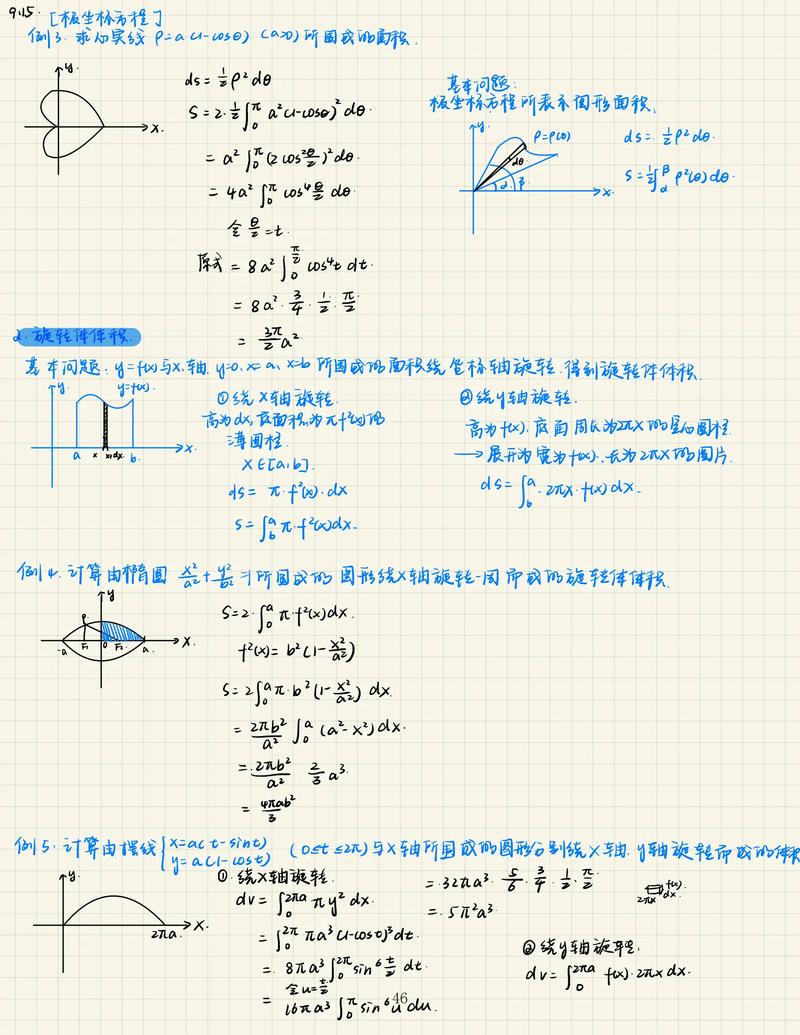 9.15.
[极坐标方程]
例3. 求心实线 ρ=a(1-cosθ) (a>0)所围成的面积.
y.
x.
ds = ½ρ²dθ
S = 2·½∫₀^π a²(1-cosθ)²dθ.
= a²∫₀^π (2cos²θ/2)²dθ.
= 4a²∫₀^π cos⁴θ/2 dθ.
令 θ/2 = t.
原式 = 8a²∫₀^(π/2) cos⁴t dt.
= 8a²·3/4·1/2·π/2
= 3π/2 a².
基本问题:
极坐标方程所表示图形面积.
y.
ρ=ρ(θ)
dθ
α. β
x.
ds = ½ρ²dθ.
S = ½∫_α^β ρ²(θ)dθ.
2. 旋转体体积.
基本问题: y=f(x)与x轴. y=0, x=a, x=b 所围成的面积绕坐标轴旋转. 得到旋转体体积.
y.
y=f(x).
a x x+dx. b.
x.
①绕X轴旋转.
高为dx, 底面积为πf²(x)的
薄圆柱.
X∈[a,b].
ds = π·f²(x)·dx
S = ∫_b^a π·f²(x)dx.
②绕y轴旋转.
高为f(x). 底面周长为2πx的空心圆柱.
→展开为宽为f(x). 长为2πx的圆片.
ds = ∫_b^a·2πx·f(x)dx.
例4. 计算由椭圆 x²/a²+y²/b²=1所围成的图形绕X轴旋转一周而成的旋转体体积.
y
P
-a F₁ 0 F₂ a.
X.
S = 2·∫₀^a π·f²(x)dx.
f²(x) = b²(1-x²/a²)
S = 2∫₀^a π·b²(1-x²/a²) dx.
= 2πb²/a² ∫₀^a (a²-x²)dx.
= 2πb²/a² 2/3 a³.
= 4πab²/3
例5. 计算由摆线{x=a(t-sint) y=a(1-cost) (0≤t≤2π)与X轴所围成的图形分别绕X轴. y轴旋转而成的体积
y.
2πa.
X.
①. 绕X轴旋转.
dv = ∫₀^(2πa) πy²dx.
= ∫₀^(2π) πa³(1-cost)³dt.
= 8πa³∫₀^(2π) sin⁶ t/2 dt.
令u=t/2
= 16πa³∫₀^π sin⁶u du.
= 32πa³·5/6·3/4·1/2·π/2
= 5π²a³
f(x)
2πx dx.
②绕y轴旋转.
dv = ∫₀^(2πa) f(x)·2πx dx.
46